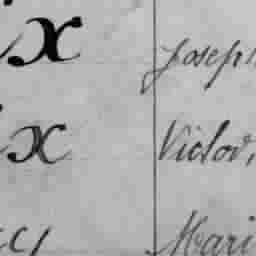 ix Joseph
ix Victor,
Mari